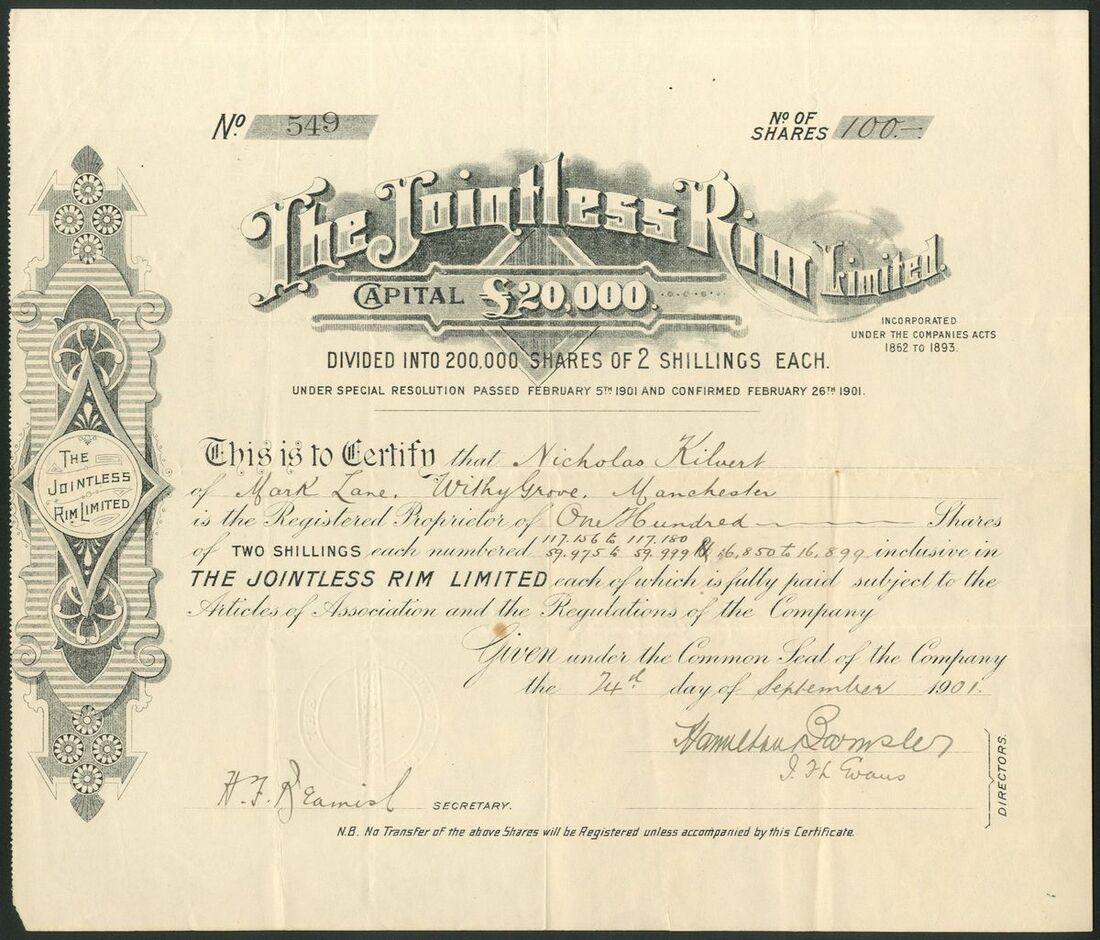 No 549
No OF SHARES 100.—
The Jointless Rim Limited.
CAPITAL £20,000.
INCORPORATED
UNDER THE COMPANIES ACTS
1862 TO 1893.
DIVIDED INTO 200,000 SHARES OF 2 SHILLINGS EACH.
UNDER SPECIAL RESOLUTION PASSED FEBRUARY 5TH 1901 AND CONFIRMED FEBRUARY 26TH 1901.
THE
JOINTLESS
RIM LIMITED
This is to Certify that Nicholas Kilvert
of Mark Lane, Withy Grove, Manchester
is the Registered Proprietor of One Hundred Shares
117.156 to 117.180
of TWO SHILLINGS each numbered 59.975 to 59.999 & 16,850 to 16,899 inclusive in
THE JOINTLESS RIM LIMITED each of which is fully paid subject to the
Articles of Association and the Regulations of the Company
Given under the Common Seal of the Company
the day of September 1901.
Hamilton
Evans
DIRECTORS.
H. F. Beamish SECRETARY.
N.B. No Transfer of the above Shares will be Registered unless accompanied by this Certificate.